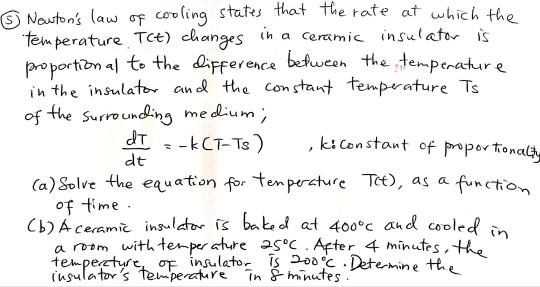 ⑤ Newton's law of cooling states that the rate at which the
temperature T(t) changes in a ceramic insulator is
proportional to the difference between the temperature
in the insulator and the constant temperature Ts
of the surrounding medium;
dT/dt = -k(T-Ts) , k: constant of proportionality
(a) Solve the equation for temperature T(t), as a function
of time.
(b) A ceramic insulator is baked at 400°C and cooled in
a room with temperature 25°C. After 4 minutes, the
temperature of insulator is 200°C. Determine the
insulator's temperature in 8 minutes.